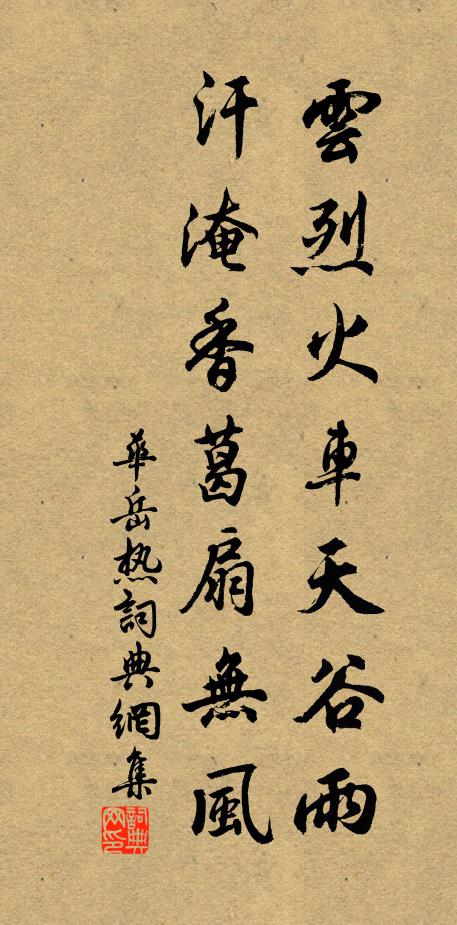 雲烈火車天谷雨
汗淹香葛扇無風
華岳热詞典網集
詞典网印